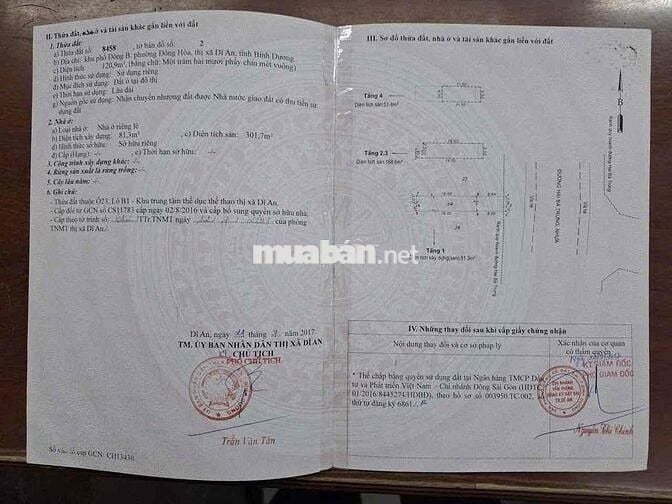 II. Thửa đất, nhà ở và tài sản khác gắn liền với đất
1. Thửa đất:
a) Thửa đất số: 8458 , tờ bản đồ số: 2
b) Địa chỉ: khu phố Đông B, phường Đông Hòa, thị xã Dĩ An, tỉnh Bình Dương
c) Diện tích: 120,9m² (bằng chữ: Một trăm hai mươi phẩy chín mét vuông)
d) Hình thức sử dụng: Sử dụng riêng
đ) Mục đích sử dụng: Đất ở tại đô thị
e) Thời hạn sử dụng: Lâu dài
g) Nguồn gốc sử dụng: Nhận chuyển nhượng đất được Nhà nước giao đất có thu tiền sử
dụng đất
2. Nhà ở:
a) Loại nhà ở: Nhà ở riêng lẻ
b) Diện tích xây dựng: 81,3m² , c) Diện tích sàn: 301,7m²
d) Hình thức sở hữu: Sở hữu riêng
đ) Cấp (Hạng): -/- , e) Thời hạn sở hữu: -/-
3. Công trình xây dựng khác: -/-
4. Rừng sản xuất là rừng trồng: -/-
5. Cây lâu năm: -/-
6. Ghi chú:
- Thửa đất thuộc Ô23, Lô B1 - Khu trung tâm thể dục thể thao thị xã Dĩ An.
- Cấp đổi từ GCN số CS11783 cấp ngày 02/8/2016 và cấp bổ sung quyền sở hữu nhà;
- Cấp theo tờ trình số: TTr.TNMT ngày của phòng
TNMT thị xã Dĩ An./.
Dĩ An, ngày tháng 2017
TM. ỦY BAN NHÂN DÂN THỊ XÃ DĨ AN
CHỦ TỊCH
PHÓ CHỦ TỊCH
Trần Văn Tân
Số vào sổ cấp GCN: CH13430
III. Sơ đồ thửa đất, nhà ở và tài sản khác gắn liền với đất
Tầng 4
Diện tích sàn:51.8m²
Tầng 2,3
Diện tích sàn:168.6m²
22
24
Tầng 1
Diện tích xây dựng(sàn):81.3m²
Ranh quy hoạch đường Hai Bà Trưng
Vỉa hè
ĐƯỜNG HAI BÀ TRƯNG, NHỰA
Vỉa hè
Ranh quy hoạch đường Hai Bà Trưng
B
IV. Những thay đổi sau khi cấp giấy chứng nhận
Nội dung thay đổi và cơ sở pháp lý
Xác nhận của cơ quan
có thẩm quyền
KT.GIÁM ĐỐC
PHÓ GIÁM ĐỐC
* Thế chấp bằng quyền sử dụng đất tại Ngân hàng TMCP Đầu
tư và Phát triển Việt Nam - Chi nhánh Đông Sài Gòn (HĐTC
01/2016/8448274/HĐBĐ), theo hồ sơ số 003950.TC.002, số
thứ tự đăng ký 6861./.
CHI NHÁNH
VĂN PHÒNG
ĐĂNG KÝ ĐẤT ĐAI
TX.DĨ AN
Nguyễn Thị Chinh
muaban.net